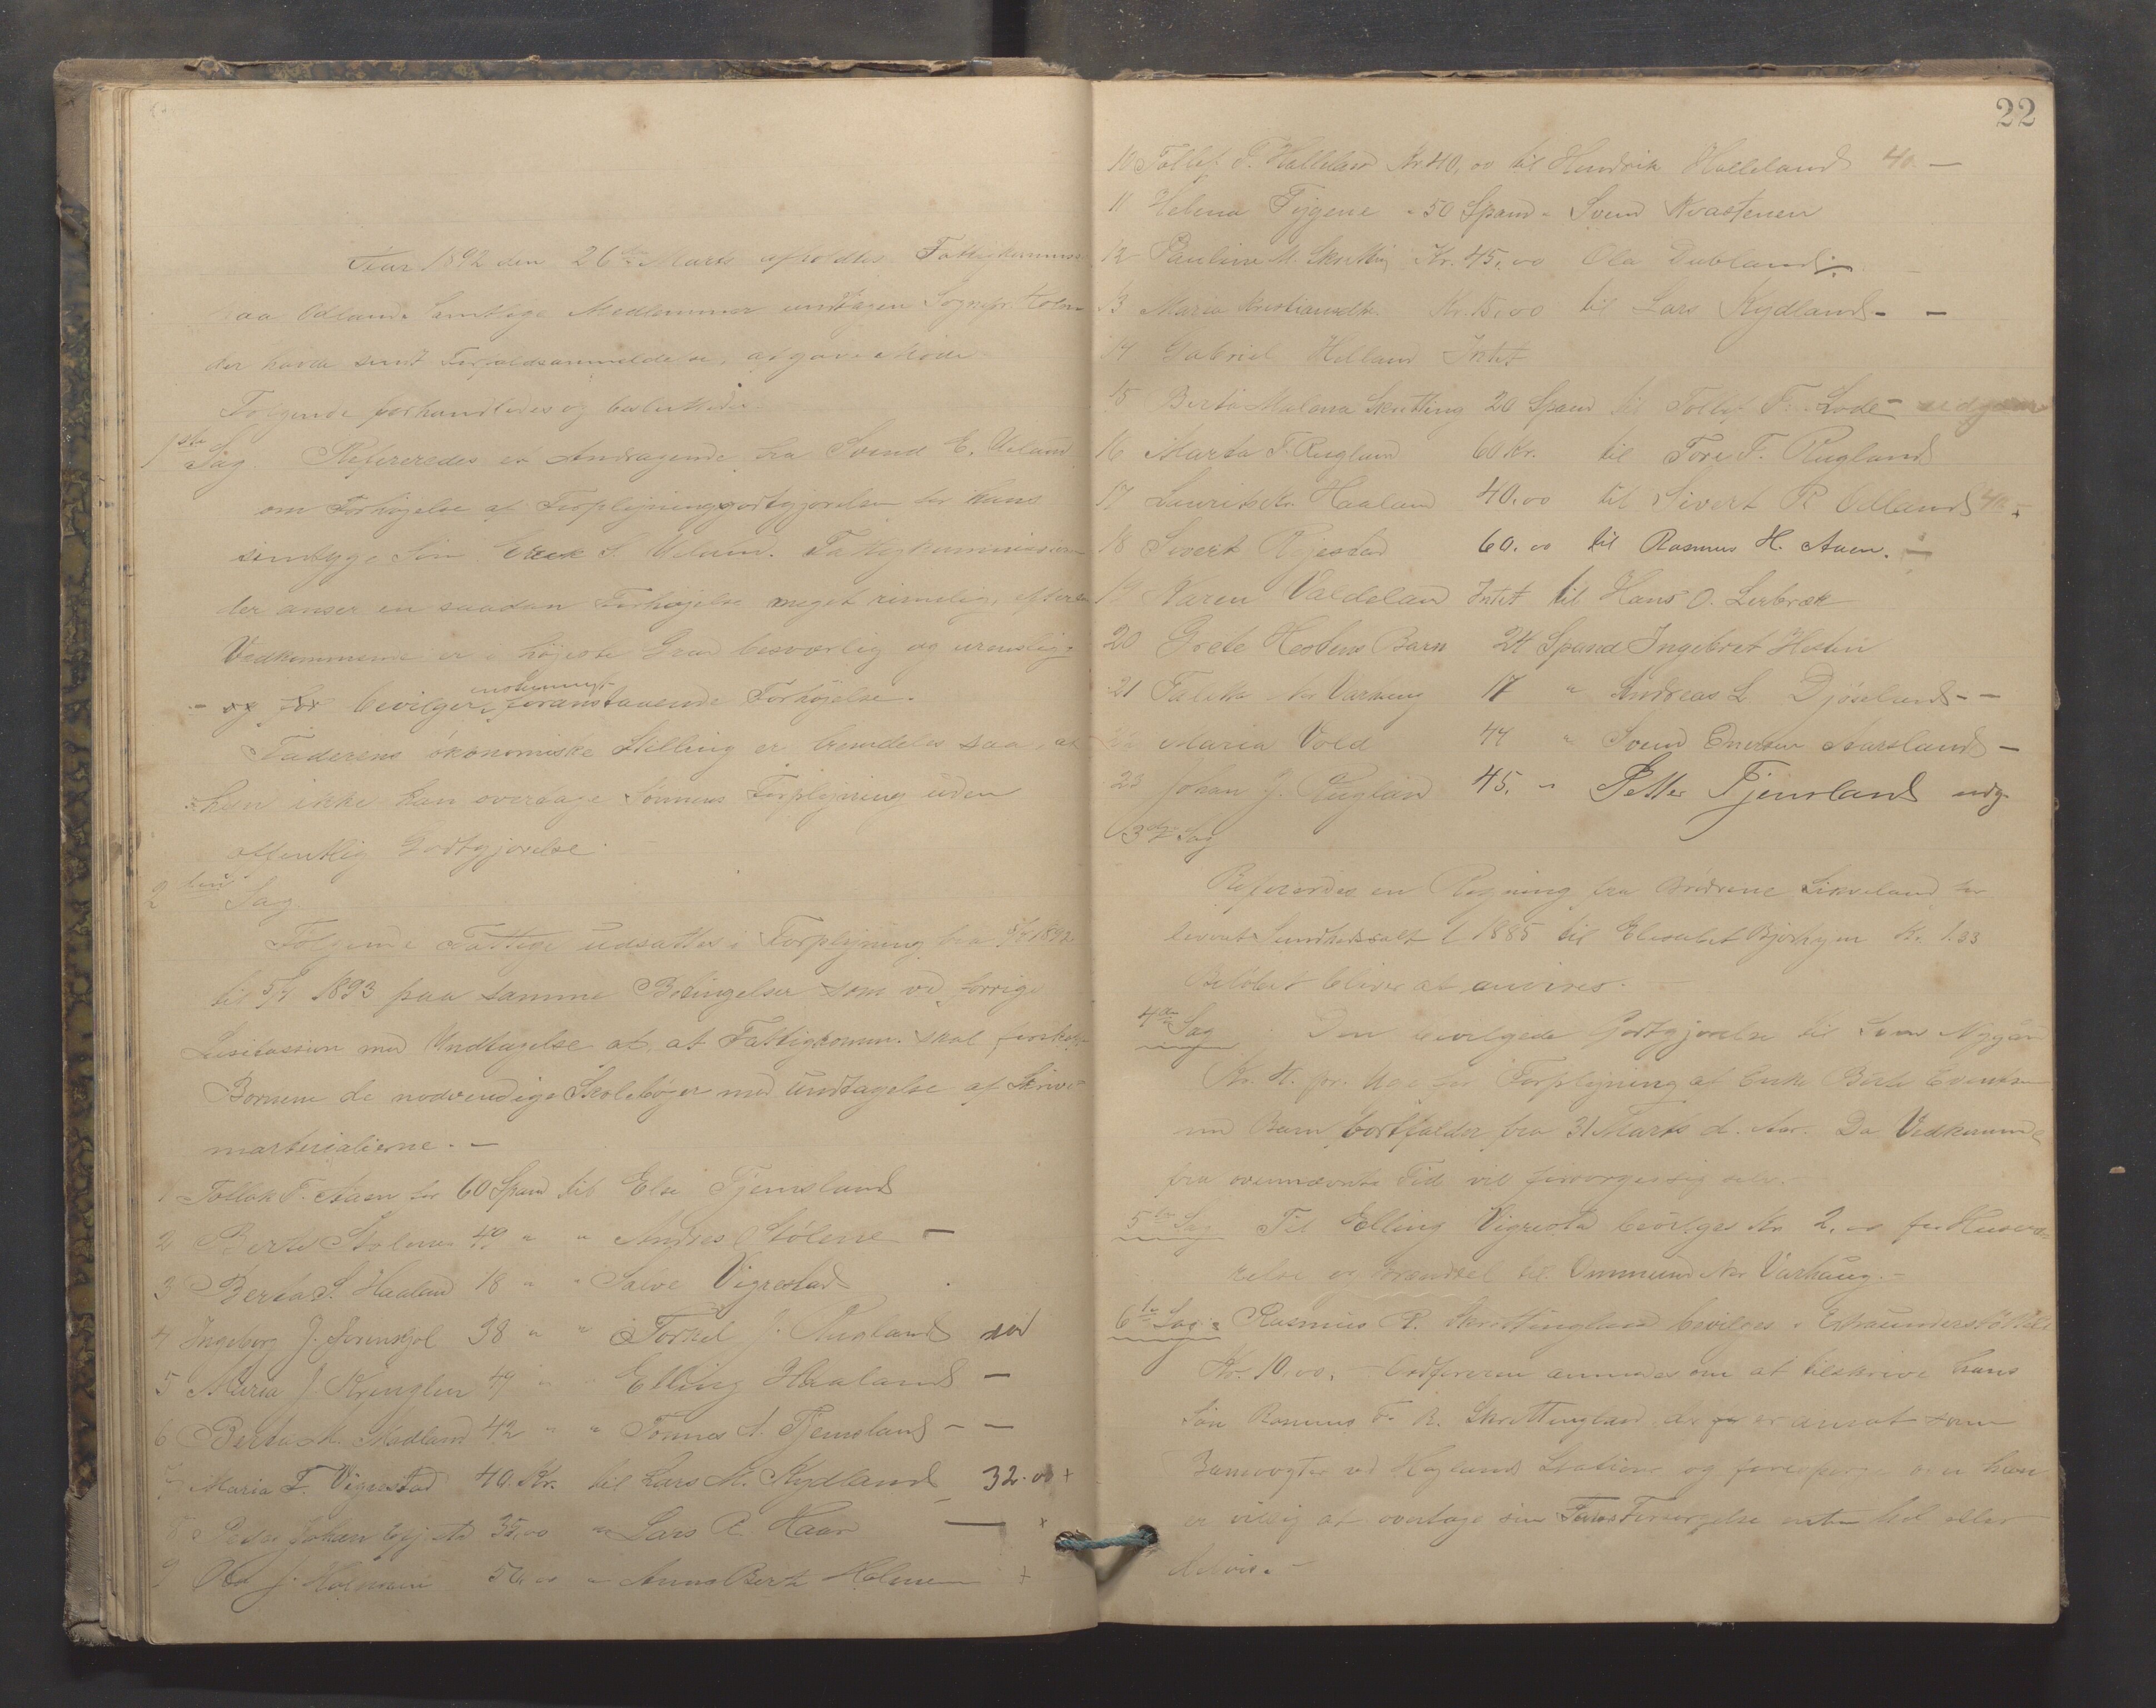 Aar 1892 den 26de Marts afholdtes Fattigkommiss
paa Odland. Samtlige Medlemmer undtagen Sognepr. Holm
der havde sendt Forfaldsanmeldelse, afgave Møde.
Følgende forhandledes og besluttedes.
1ste Sag. Refereredes et Andragende fra Svend E. Ueland
om Forhøjelse af Forplejningsgodtgjørelsen for hans
sindsyge Søn Erek S. Ueland. Fattigkommissionen
der anser en saadan Forhøjelse meget rimelig, efterso
Vedkommende er i højeste Grad besværlig og urenslig
- og for bevilger enstemmigt foranstaaende Forhøjelse.
Faderens økonomiske Stilling er fremdeles saa, at
han ikke kan overtage Sønnens Forplejning uden
offentlig Godtgjørelse.
2den Sag
Følgende Fattige udsattes i Forplejning fra 5/4 1892
til 5/4 1893 paa samme Betingelser som ved forrige
Lisitassion med Undtagelse af, at Fattigkomm. skal
Børnene de nødvendige Skolebøger med undtagelse af Skrive
materialierne. -
1 Tollak T. Aasen for 60 Spand til Else Tjemsland
2 Berte Stølene 49 " " Andres Stølene -
3 Berta S. Haaland 18 " " Salve Vigrestad
4 Ingeborg J. 38 " " Torkel J. Rugland
5 Maria J. Krenglen 47 " " Elling Haaland -
6 Berta M. Madland 42 " " Tønnes A. Tjemsland - -
7 Maria T. Vigrestad 40. Kr. til Lars M. Kydland 32.00 +
8 Peder Johan 35,00 " Lars R. Haar - +
9 J. Holmen 50,00 " Anna Berta Holmen +
22
10 Tollef T. Halleland Kr. 40,00 til Hendrik Halleland 40. -
11 Helena Tygene " 50 Spand " Svend Kvastenen
12 Pauline M. Skretting Kr. 45,00 Ola Dubland -
13 Maria Kristiansdtr. Kr. 15,00 til Lars Kydland - -
14 Gabriel Helland Intet
15 Berta Malena Skretting 20 Spand til Tollef T. Lode - udgaar
16 Marta T. Rugland 60 Kr. til Tore T. Rugland
17 Lauritz Kr. Haaland 40.00 til Sivert R Odland 40. +
18 Sivert 60.00 til Rasmus H. Auen. -
19 Karen Valdeland Intet til Hans O. Lerbræk
20 Grete Hestens Barn 24 Spand Ingebret Hesten
21 Nr Varhaug 17 " Andreas L. Djøseland - -
22 Maria Vold 44 " Svend Enersen Aursland -
23 Johan J. Rugland 45. " Petter Tjemsland udg.
3die Sag
Refereredes en Regning fra Brødrene Sikveland for
leveret Sundhedssalt i 1885 til Elisabet Bjorhjem Kr. 1.33
Beløbet bliver at anvises.
4de Sag Den bevilgede Godtgjørelse til Sven Nygaard
Kr. 4. pr. Uge for Forplejning af Enke Berte Evensen
med Barn, bortfalder fra 31 Marts d. Aar. Da Vedkommende
fra ovennævnte Tid vil forsørge sig selv.
5te Sag Til Elling Vigrestad bevilges Kr 2.00 for Husvæ-
relse og Brændsel til Ommund Nr. Varhaug. -
6te Sag. Rasmus R. Skrettingland bevilges i Extraunderstøttelse
Kr. 10.00. - Ordføreren anmodes om at tilskrive hans
Søn Rasmus F. R. Skrettingland, der er ansat som
Banevogter ved Høgland Station og forespørge om han
er villig at overtage sin Fars Forsørgelse enten hel eller
delvis. -